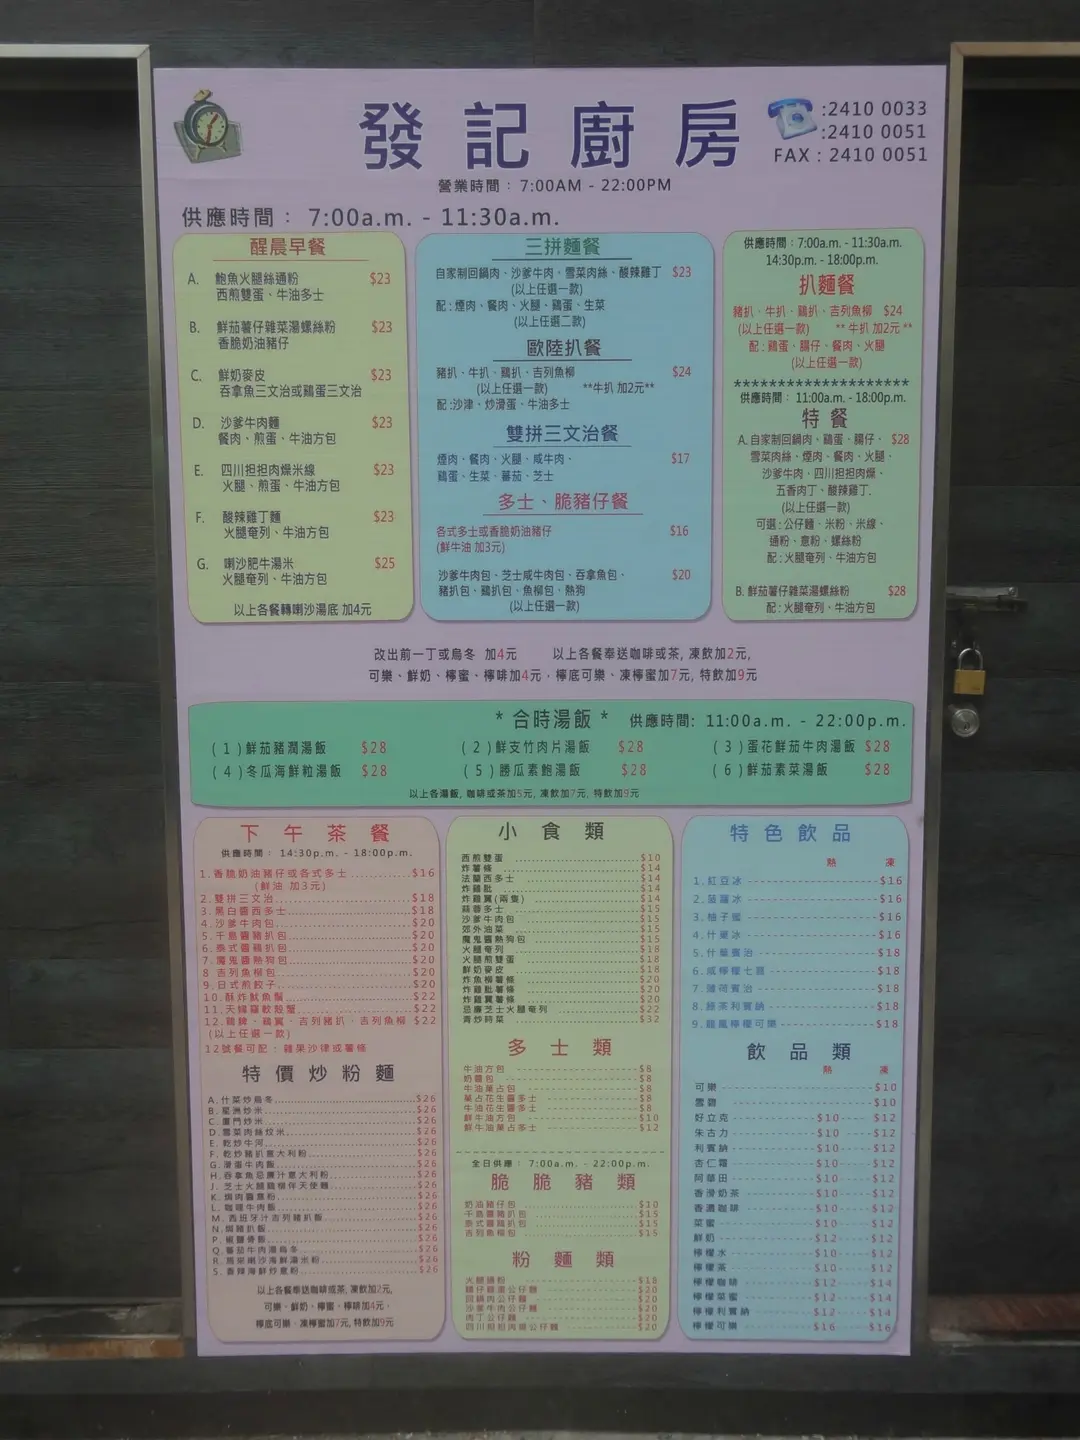 發記廚房
:2410 0033
:2410 0051
FAX : 2410 0051
營業時間 : 7:00AM - 22:00PM
供應時間 : 7:00a.m. - 11:30a.m.
醒晨早餐
A. 鮑魚火腿絲通粉 $23
西煎雙蛋、牛油多士
B. 鮮茄薯仔雜菜湯螺絲粉 $23
香脆奶油豬仔
C. 鮮奶麥皮 $23
吞拿魚三文治或鷄蛋三文治
D. 沙爹牛肉麵 $23
餐肉、煎蛋、牛油方包
E. 四川担担肉燥米線 $23
火腿、煎蛋、牛油方包
F. 酸辣雞丁麵 $23
火腿奄列、牛油方包
G. 喇沙肥牛湯米 $25
火腿奄列、牛油方包
以上各餐轉喇沙湯底 加4元
三拼麵餐
自家制回鍋肉、沙爹牛肉、雪菜肉絲、酸辣雞丁 $23
(以上任選一款)
配 : 煙肉、餐肉、火腿、鷄蛋、生菜
(以上任選二款)
歐陸扒餐
豬扒、牛扒、鷄扒、吉列魚柳 $24
(以上任選一款) **牛扒 加2元**
配 :沙津、炒滑蛋、牛油多士
雙拼三文治餐
煙肉、餐肉、火腿、咸牛肉、 $17
鷄蛋、生菜、蕃茄、芝士
多士、脆豬仔餐
各式多士或香脆奶油豬仔 $16
(鮮牛油 加3元)
沙爹牛肉包、芝士咸牛肉包、吞拿魚包、 $20
豬扒包、鷄扒包、魚柳包、熱狗
(以上任選一款)
供應時間 : 7:00a.m. - 11:30a.m.
14:30p.m. - 18:00p.m.
扒麵餐
豬扒、牛扒、鷄扒、吉列魚柳 $24
(以上任選一款) ** 牛扒 加2元 **
配 : 鷄蛋、腸仔、餐肉、火腿
(以上任選一款)
********************
供應時間 : 11:00a.m. - 18:00p.m.
特餐
A.自家制回鍋肉、鷄蛋、腸仔、 $28
雪菜肉絲、煙肉、餐肉、火腿、
沙爹牛肉、四川担担肉燥、
五香肉丁、酸辣雞丁.
(以上任選一款)
可選 : 公仔麵、米粉、米線、
通粉、意粉、螺絲粉
配 : 火腿奄列、牛油方包
B. 鮮茄薯仔雜菜湯螺絲粉 $28
配 : 火腿奄列、牛油方包
改出前一丁或烏冬 加4元 以上各餐奉送咖啡或茶, 凍飲加2元,
可樂、鮮奶、檸蜜、檸啡加4元，檸底可樂、凍檸蜜加7元, 特飲加9元
* 合時湯飯 * 供應時間: 11:00a.m. - 22:00p.m.
( 1 )鮮茄豬潤湯飯 $28
( 2 )鮮支竹肉片湯飯 $28
( 3 )蛋花鮮茄牛肉湯飯 $28
( 4 )冬瓜海鮮粒湯飯 $28
( 5 )勝瓜素鮑湯飯 $28
( 6 )鮮茄素菜湯飯 $28
以上各湯飯, 咖啡或茶加5元, 凍飲加7元, 特飲加9元
下午茶餐
供應時間 : 14:30p.m. - 18:00p.m.
1.香脆奶油豬仔或各式多士 $16
(鮮油 加3元)
2.雙拼三文治 $18
3.黑白醬西多士 $18
4.沙爹牛肉包 $20
5.千島醬豬扒包 $20
6.泰式醬鷄扒包 $20
7.魔鬼醬熱狗包 $20
8 吉列魚柳包 $20
9.日式煎餃子 $20
10.酥炸魷魚鬚 $22
11.天婦羅軟殼蟹 $22
12.鷄髀、鷄翼、吉列豬扒、吉列魚柳 $22
(以上任選一款)
12號餐可配 : 雜果沙律或薯條
特價炒粉麵
A.什菜炒烏冬 $26
B.星洲炒米 $26
C.廈門炒米 $26
D.雪菜肉絲炆米 $26
E.乾炒牛河 $26
F.乾炒豬扒意大利粉 $26
G.滑蛋牛肉飯 $26
H.吞拿魚忌廉汁意大利粉 $26
J.芝士火腿鷄柳伴天使麵 $26
K.焗肉醬意粉 $26
L.咖喱牛肉飯 $26
M.西班牙汁吉列豬扒飯 $26
N.焗豬扒飯 $26
P.椒鹽骨飯 $26
Q.蕃茄牛肉湯烏冬 $26
R.馬來喇沙海鮮湯米粉 $26
S.香辣海鮮炒意粉 $26
以上各餐奉送咖啡或茶, 凍飲加2元,
可樂、鮮奶、檸蜜、檸啡加4元，
檸底可樂、凍檸蜜加7元, 特飲加9元
小食類
西煎雙蛋 $10
炸薯條 $14
法蘭西多士 $14
炸雞肶 $14
炸雞翼(兩隻) $14
蒜蓉多士 $15
沙爹牛肉包 $15
郊外油菜 $15
魔鬼醬熱狗包 $15
火腿奄列 $18
火腿煎雙蛋 $18
鮮奶麥皮 $18
炸魚柳薯條 $20
炸雞肶薯條 $20
炸雞翼薯條 $20
忌廉芝士火腿奄列 $22
清炒時菜 $32
多士類
牛油方包 $8
奶醬包 $8
牛油菓占包 $8
菓占花生醬多士 $8
牛油花生醬多士 $8
鮮牛油方包 $10
鮮牛油菓占多士 $12
全日供應 : 7:00a.m. - 22:00p.m.
脆脆豬類
奶油豬仔包 $10
千島醬豬扒包 $15
泰式醬豬扒包 $15
吉列魚柳包 $15
粉麵類
火腿通粉 $18
腸仔雞蛋公仔麵 $20
回鍋肉公仔麵 $20
沙爹牛肉公仔麵 $20
肉丁公仔麵 $20
四川担担肉燥公仔麵 $20
特色飲品
熱 凍
1.紅豆冰 $16
2.菠蘿冰 $16
3.柚子蜜 $16
4.什菓冰 $16
5.什菓賓治 $18
6.咸檸檬七喜 $18
7.薄荷賓治 $18
8.綠茶利賓納 $18
9.龍鳳檸檬可樂 $18
飲品類
熱 凍
可樂 $10
雪碧 $10
好立克 $10 $12
朱古力 $10 $12
利賓納 $10 $12
杏仁霜 $10 $12
阿華田 $10 $12
香滑奶茶 $10 $12
香濃咖啡 $10 $12
菜蜜 $10 $12
鮮奶 $12 $12
檸檬水 $10 $12
檸檬茶 $10 $12
檸檬咖啡 $12 $14
檸檬菜蜜 $12 $14
檸檬利賓納 $12 $14
檸檬可樂 $16 $16